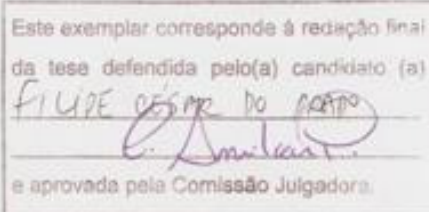 Este exemplar corresponde à redação final
da tese defendida pelo(a) candidato (a)
FILIPE CÉSAR DO PRADO
e aprovada pela Comissão Julgadora.